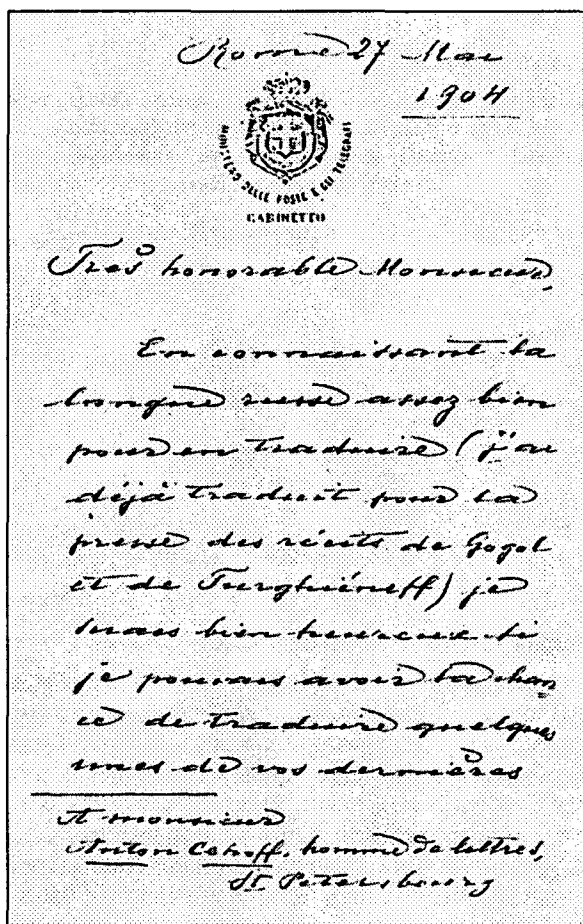 Rome 27 Mai
1904
MINISTERO DELLE POSTE E DEI TELEGRAFI
GABINETTO
Très honorable Monsieur,
En connaissant la
langue russe assez bien
pour en traduire (j'ai
déjà traduit pour la
presse des récits de Gogol
et de Turghiéneff) je
serais bien heureux si
je pouvais avoir la chan
ce de traduire quelques
unes de vos dernières
A monsieur
Anton Cehoff, homme de lettres,
St Petersbourg